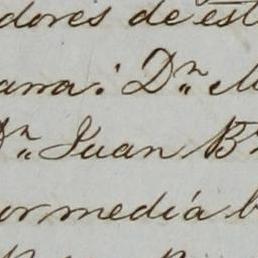 dores de est
arra: Dn. M
Dn. Juan Bn
or mediá b